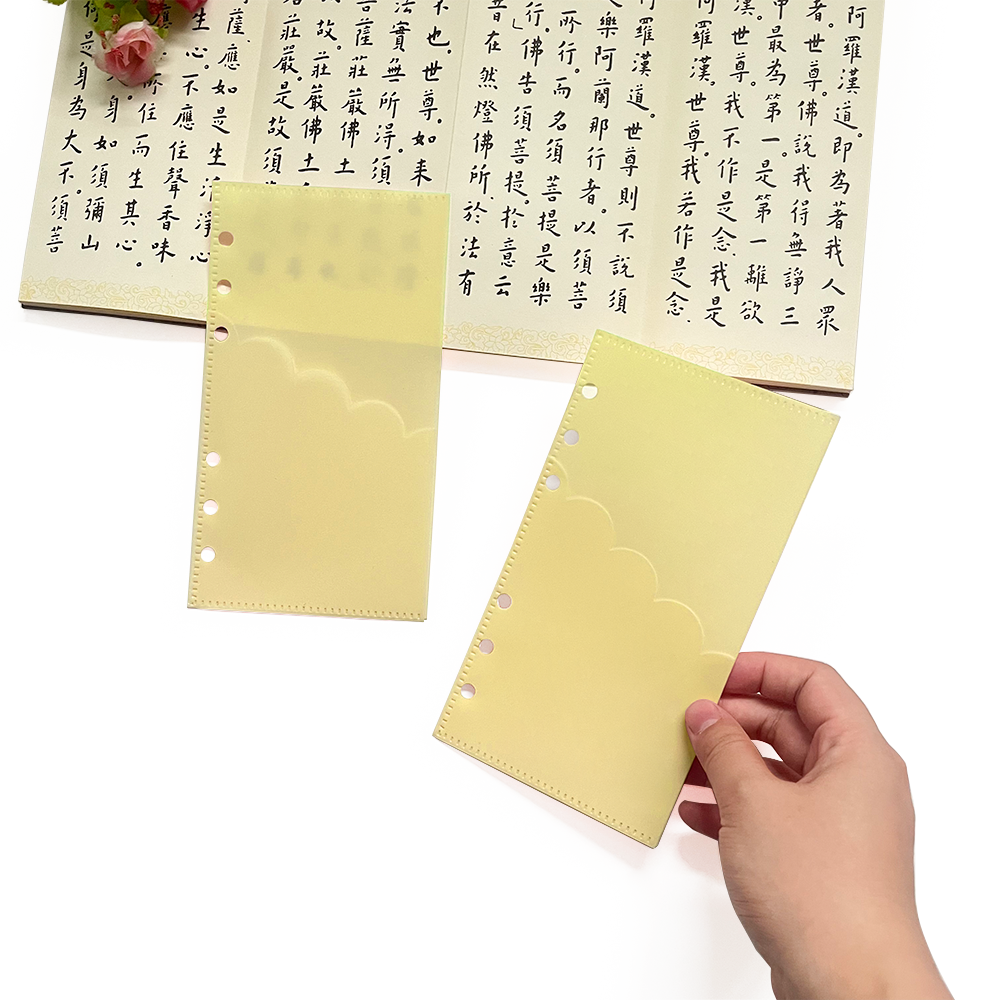 阿羅漢道。即為著我人眾
者。世尊。佛說我得無諍三
中最為第一。是第一離欲
漢。世尊。我不作是念。我是
阿羅漢。世尊。我若作是念.
阿羅漢道。世尊則不說須
樂阿蘭那行者。以須菩
所行。而名須菩提是樂
行。」佛告須菩提。於意云
昔在然燈佛所.於法有
不也。世尊。如来
法實無所得。須
菩薩莊嚴佛土
故。莊嚴佛土
莊嚴。是故須
薩應如是生 淨心
生心。不應住聲香味
應 所住而生其心。
身如須彌山
何是身為大不。須菩